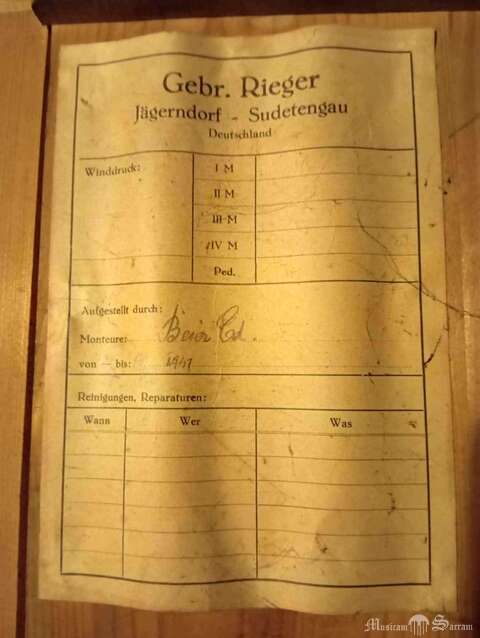 Gebr. Rieger
Jägerndorf - Sudetengau
Deutschland
Winddruck:
I M
II M
III M
IV M
Ped.
Aufgestellt durch:
Monteure: Beier Ed.
von — bis: 1941
Reinigungen, Reparaturen:
Wann Wer Was
Musicam Sacram